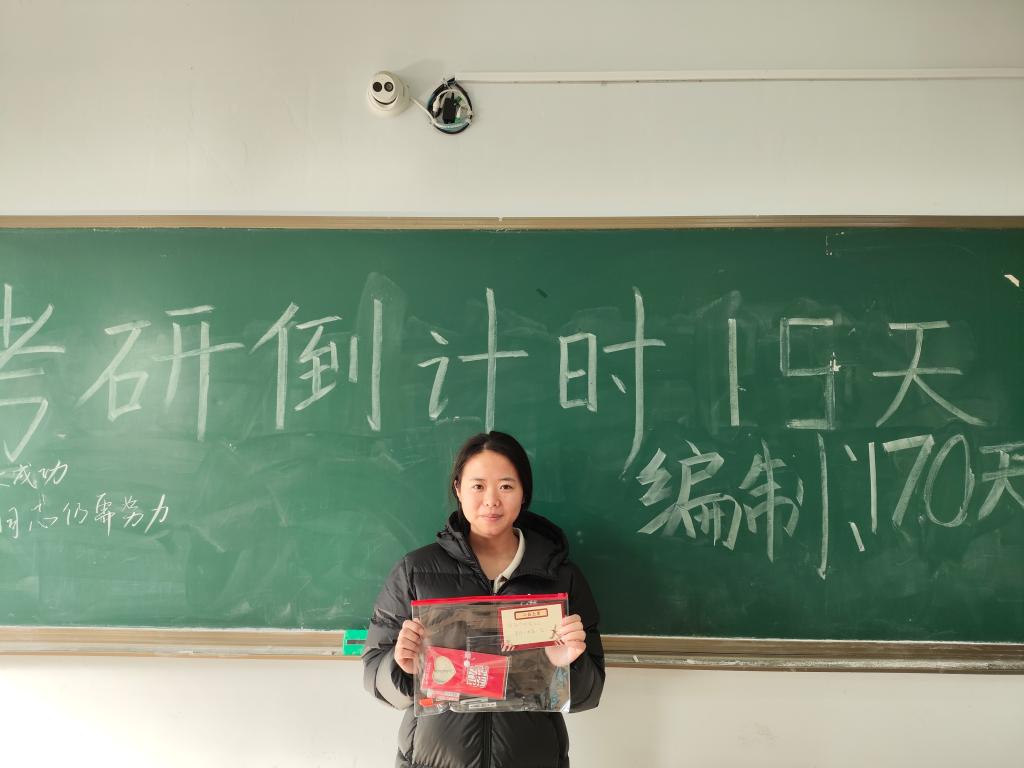 考研倒计时15天
成功
同志仍需努力
编制:170天